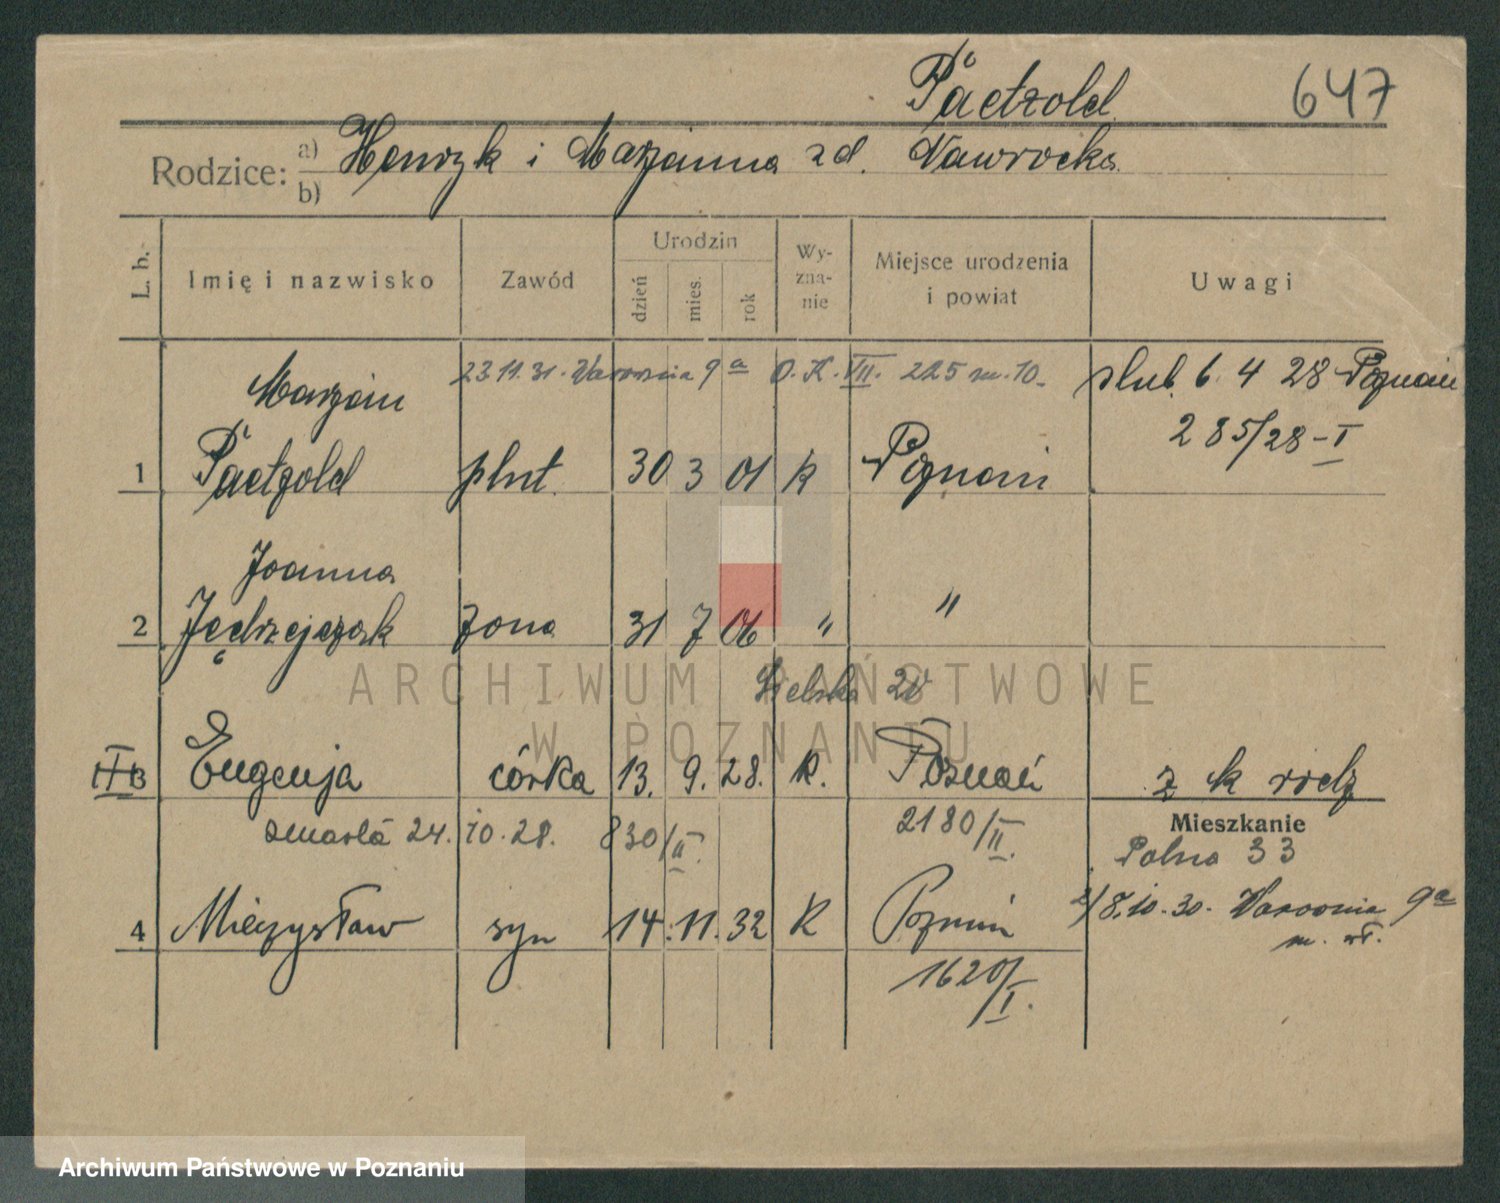 Paetzold 647
Rodzice: a) Henryk i Marjanna zd. Nawrocka
b)
L. b. Imię i nazwisko Zawód Urodzin dzień mies. rok Wyznanie Miejsce urodzenia i powiat Uwagi
Marjan 23.11.31. 9a O.K. VII. 225 m. 10. ślub. 6. 4 28 Poznań
285/28-I
1 Paetzold 30 3 01 k Poznań
Joanna
2 Jędrzejczak żona 31 7 06 " "
20
3 Eugenja córka 13. 9. 28. k. Poznań z k rodz
zmarła 24. 10. 28. 830/II. 2180/II. Mieszkanie
Polna 33
4 Mieczysław syn 14. 11. 32 k Poznań 8.10.30. 9a
1620/I.
ARCHIWUM PAŃSTWOWE
W POZNANIU
Archiwum Państwowe w Poznaniu